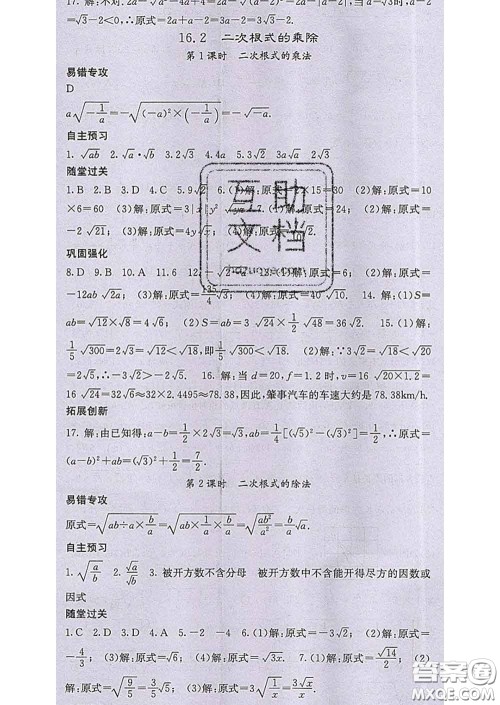 17. 解:不对.
√3-2<0,∴原式=2a-a-2=a-2=3√3-2.
16.2 二次根式的乘除
第1课时 二次根式的乘法
易错专攻
D
a√(-1/a)=-√((-a)²×(-1/a))=-√-a.
自主预习
1. √ab 2. √a·√b 3.2√3 4.4a 5.3√2 3a√a 2√3
随堂过关
1.B 2.B 3.D 4.C 5.9√2 6.(1)解:原式= ×15=30 (2)解:原式=10
×6=60 (3)解:原式=3|x|y² (1)解:原式=24; (2)解:原式=
-2√21; (3)解:原式=4y√x; (4)解:原式=
巩固强化
8.D 9.B 10.A 11.6 12. 13. (2)解:原式=
-12ab√2a; (3)解:原式= √3; (4)解:原式=40√10. 14.(1)S=
ab=√12×√8=4√6; (2)S=ab=3√12×1/2√48=36√2. 15.(1)解:
1/5√300=2√3=√12<√18,即1/5√300<√18. (2)解:∵3√2=√18<√20
=2√5,∴-3√2>-2√5. 16.解:当d=20,f=1.2时,v=16√20×1.2=
16√24=32√6≈32×2.4495≈78.38,因此,肇事汽车的车速大约是78.38km/h.
拓展创新
17. 解:由已知得:a-b=1/2×2√3=√3,ab=1/4[(√5)²-(√3)²]=1/2,∴原式=
(a-b)²+ab=(√3)²+1/2=7/2.
第2课时 二次根式的除法
易错专攻
原式=√(ab÷a×b/a)=√(ab×1/a×b/a)=√(ab²/a²)=b/a√a.
自主预习
1. √(a/b) 2. √a/√b 3. 被开方数不含分母 被开方数中不含能开得尽方的因数或
因式
随堂过关
1.C 2.D 3.D 4.A 5.-2 -4 6.(1)解:原式=-3√2; (2)解:原式=
-4/3; (3)解:原式=√6; (4)解:原式=√3x. 7.(1)解:原式=√14/2; (2)
解:原式=√(9/5)=3/5√5; (3)解:原式=3√(1/x)=3/x√x.
互助
文档
答案圈
MXQE.COM